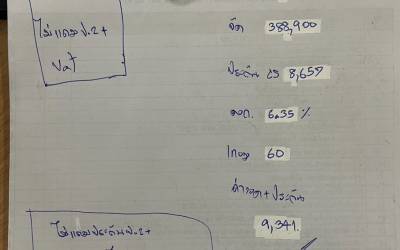 ไม่แถม ป.2+
Vat
จัด 388,900
ประกัน 25 8,657
ดอก. 6.35 %
งวด 60
ค่างวด + ประกัน
9,341.
ไม่แถมประกัน ป.2+